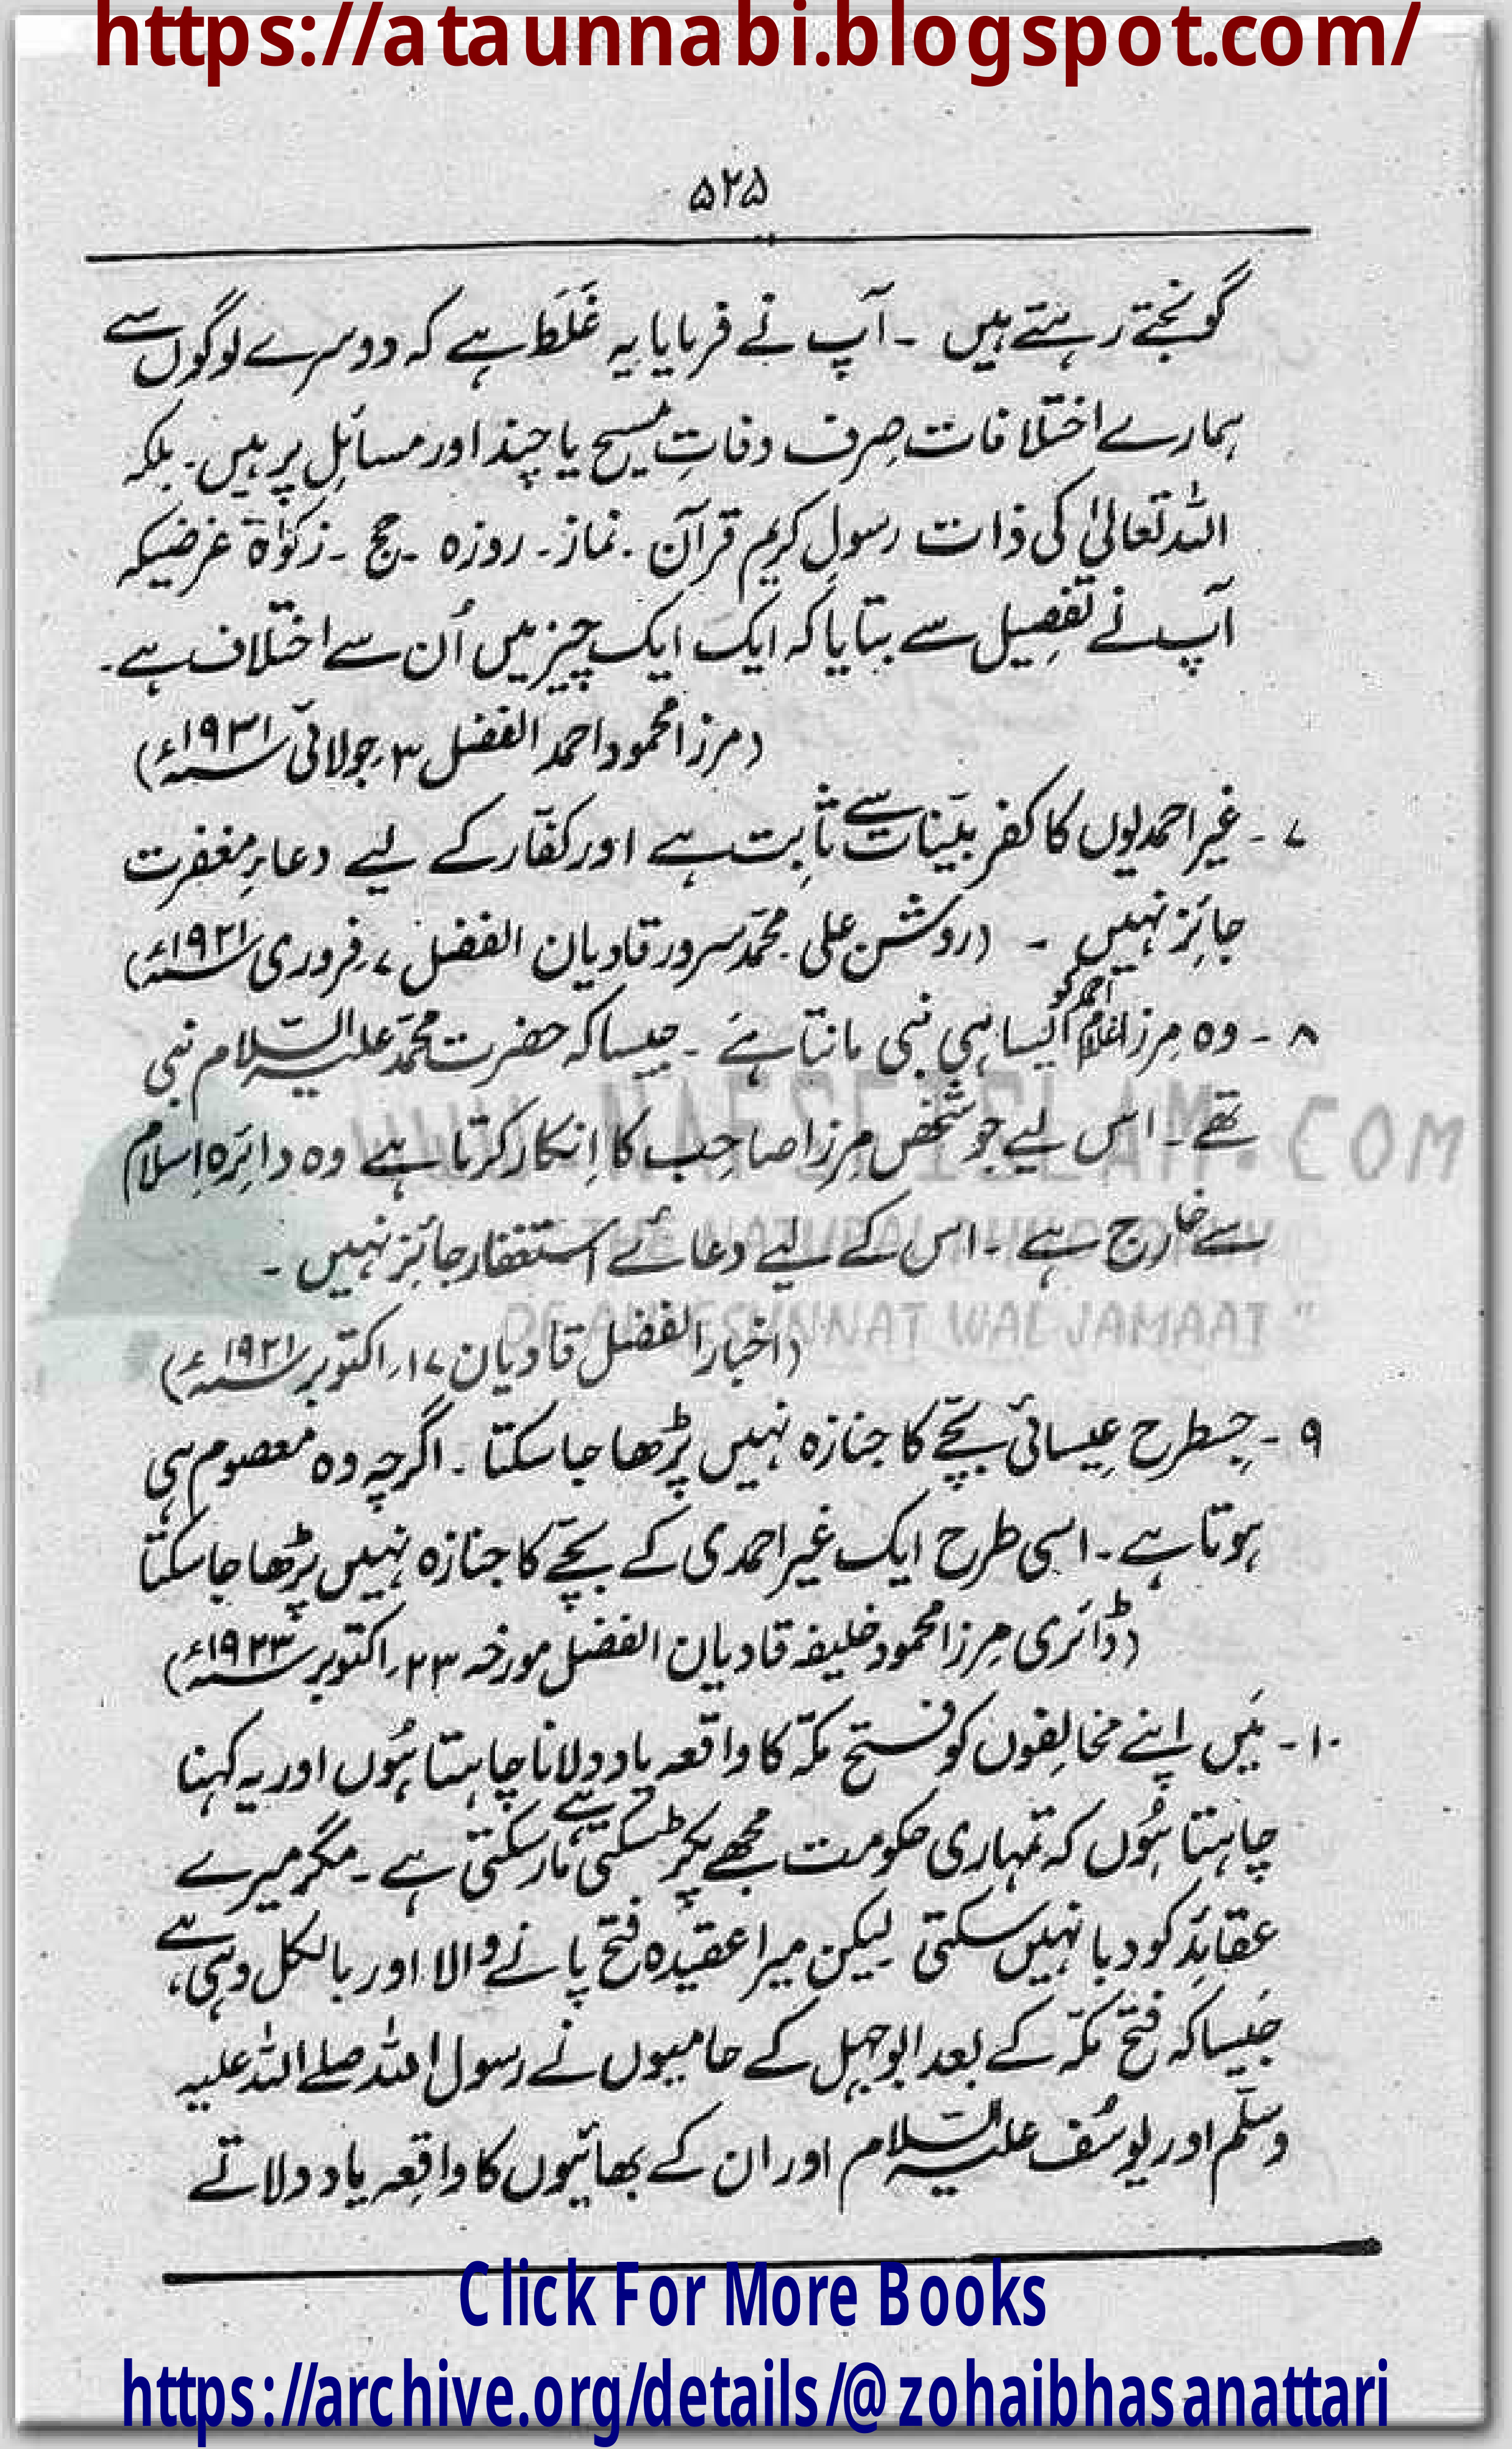 https://ataunnabi.blogspot.com/
۵۲۵
گونجتے رہتے ہیں ۔ آپ نے فرمایا یہ غَلَط ہے کہ دوسرے لوگوں سے
ہمارے اختلافات صِرف وفاتِ مسیح یا چند اور مسائل پر ہیں۔ بلکہ
اللہ تعالیٰ کی ذات رسولِ کریم قرآن ۔ نماز ۔ روزہ ۔ حج ۔ زکوٰۃ غرضیکہ
آپ نے تفصیل سے بتایا کہ ایک ایک چیز میں اُن سے اختلاف ہے۔
(مرزا محمود احمد الفضل ۳؍جولائی سنہ ۱۹۳۱ء)
۷ ۔ غیر احمدیوں کا کفر بیّنات سے ثابت ہے اور کفّار کے لیے دعاءِ مغفرت
جائز نہیں ۔ (روشن علی محمد سرور قادیان الفضل ۷؍فروری سنہ ۱۹۲۱ء)
۸ ۔ وہ مرزا غلام احمد کو ایسا ہی نبی مانتا ہے ۔ جیسا کہ حضرت محمّد علیہ السّلام نبی
تھے ۔ اس لیے جو شخص مرزا صاحب کا اِنکار کرتا ہے وہ دائرہ اِسلام
سے خارج ہے ۔ اس کے لیے دعائے استغفار جائز نہیں ۔
(اخبار الفضل قادیان ۱۷؍اکتوبر سنہ ۱۹۲۱ء)
۹ ۔ جِسطرح عیسائی بچّے کا جنازہ نہیں پڑھا جا سکتا ۔ اگرچہ وہ معصوم ہی
ہوتا ہے ۔ اسی طرح ایک غیر احمدی کے بچّے کا جنازہ نہیں پڑھا جا سکتا
(ڈائری مرزا محمود خلیفہ قادیان الفضل مورخہ ۲۳؍اکتوبر سنہ ۱۹۲۳ء)
۱۰ ۔ مَیں اپنے مخالِفوں کو فتح مکّہ کا واقعہ یاد دلانا چاہتا ہُوں اور یہ کہنا
چاہتا ہُوں کہ تمہاری حکومت مجھے پکڑ سکتی ہے مار سکتی ہے ۔ مگر میرے
عقائد کو دبا نہیں سکتی لیکن میرا عقیدہ فتح پانے والا اور بالکل وہی ہے،
جَیسا کہ فتح مکّہ کے بعد ابوجہل کے حامیوں نے رسول اللہ صلے اللہ علیہ
وسلّم اور یوسُف علیہ السّلام اور ان کے بھائیوں کا واقعہ یاد دلاتے
WWW.NAFSEISLAM.COM
OF AHLESUNNAT WAL JAMAAT "
Click For More Books
https://archive.org/details/@zohaibhasanattari